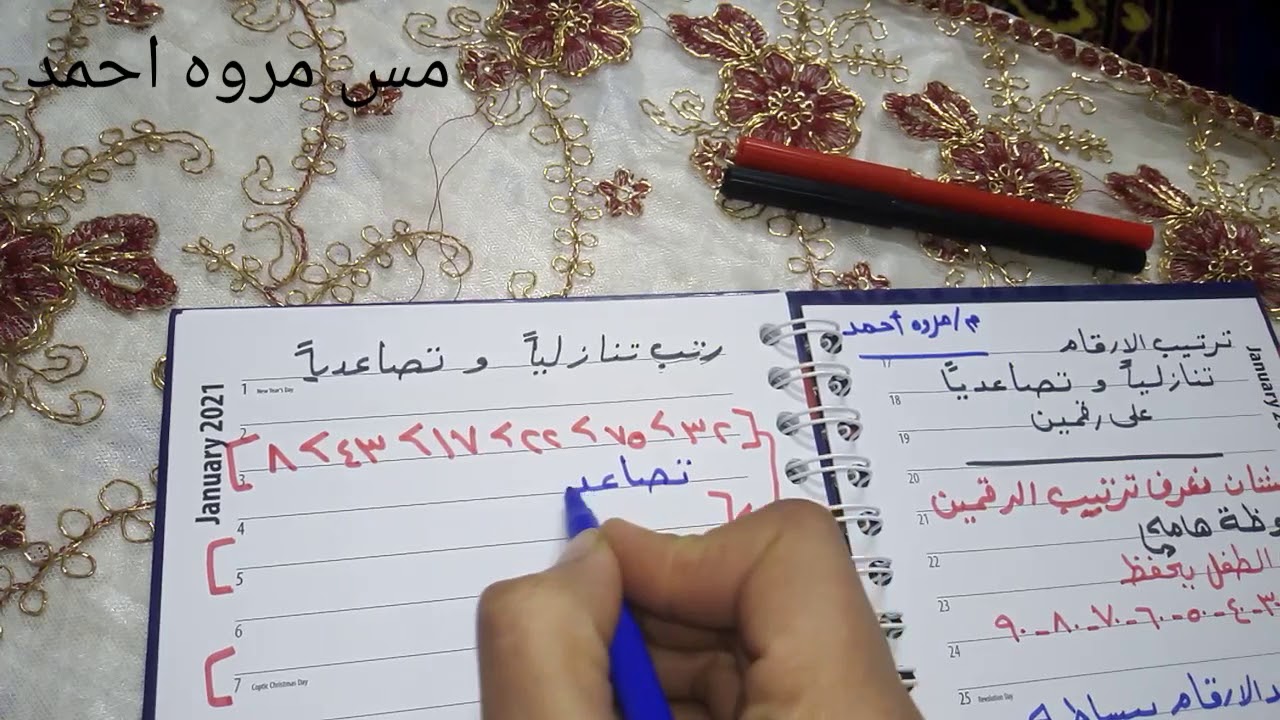 مس مروه احمد
م/مروه أحمد
ترتيب الارقام
تنازلياً و تصاعدياً
على رقمين
نعرف ترتيب الرقمين
هامه
الطفل يحفظ
٤٠ـ٥٠ـ٦٠ـ٧٠ـ٨٠ـ٩٠
الارقام ببساطة
رتب تنازلياً و تصاعدياً
[٣٢ > ٧٥ > ٢٢ > ١٧ > ٤٣ > ٨]
تصاعد
January 2021
1 New Year's Day
2
3
4
5
6
7 Coptic Christmas Day
January
17
18
19
20
21
22
23
24
25 Revolution Day